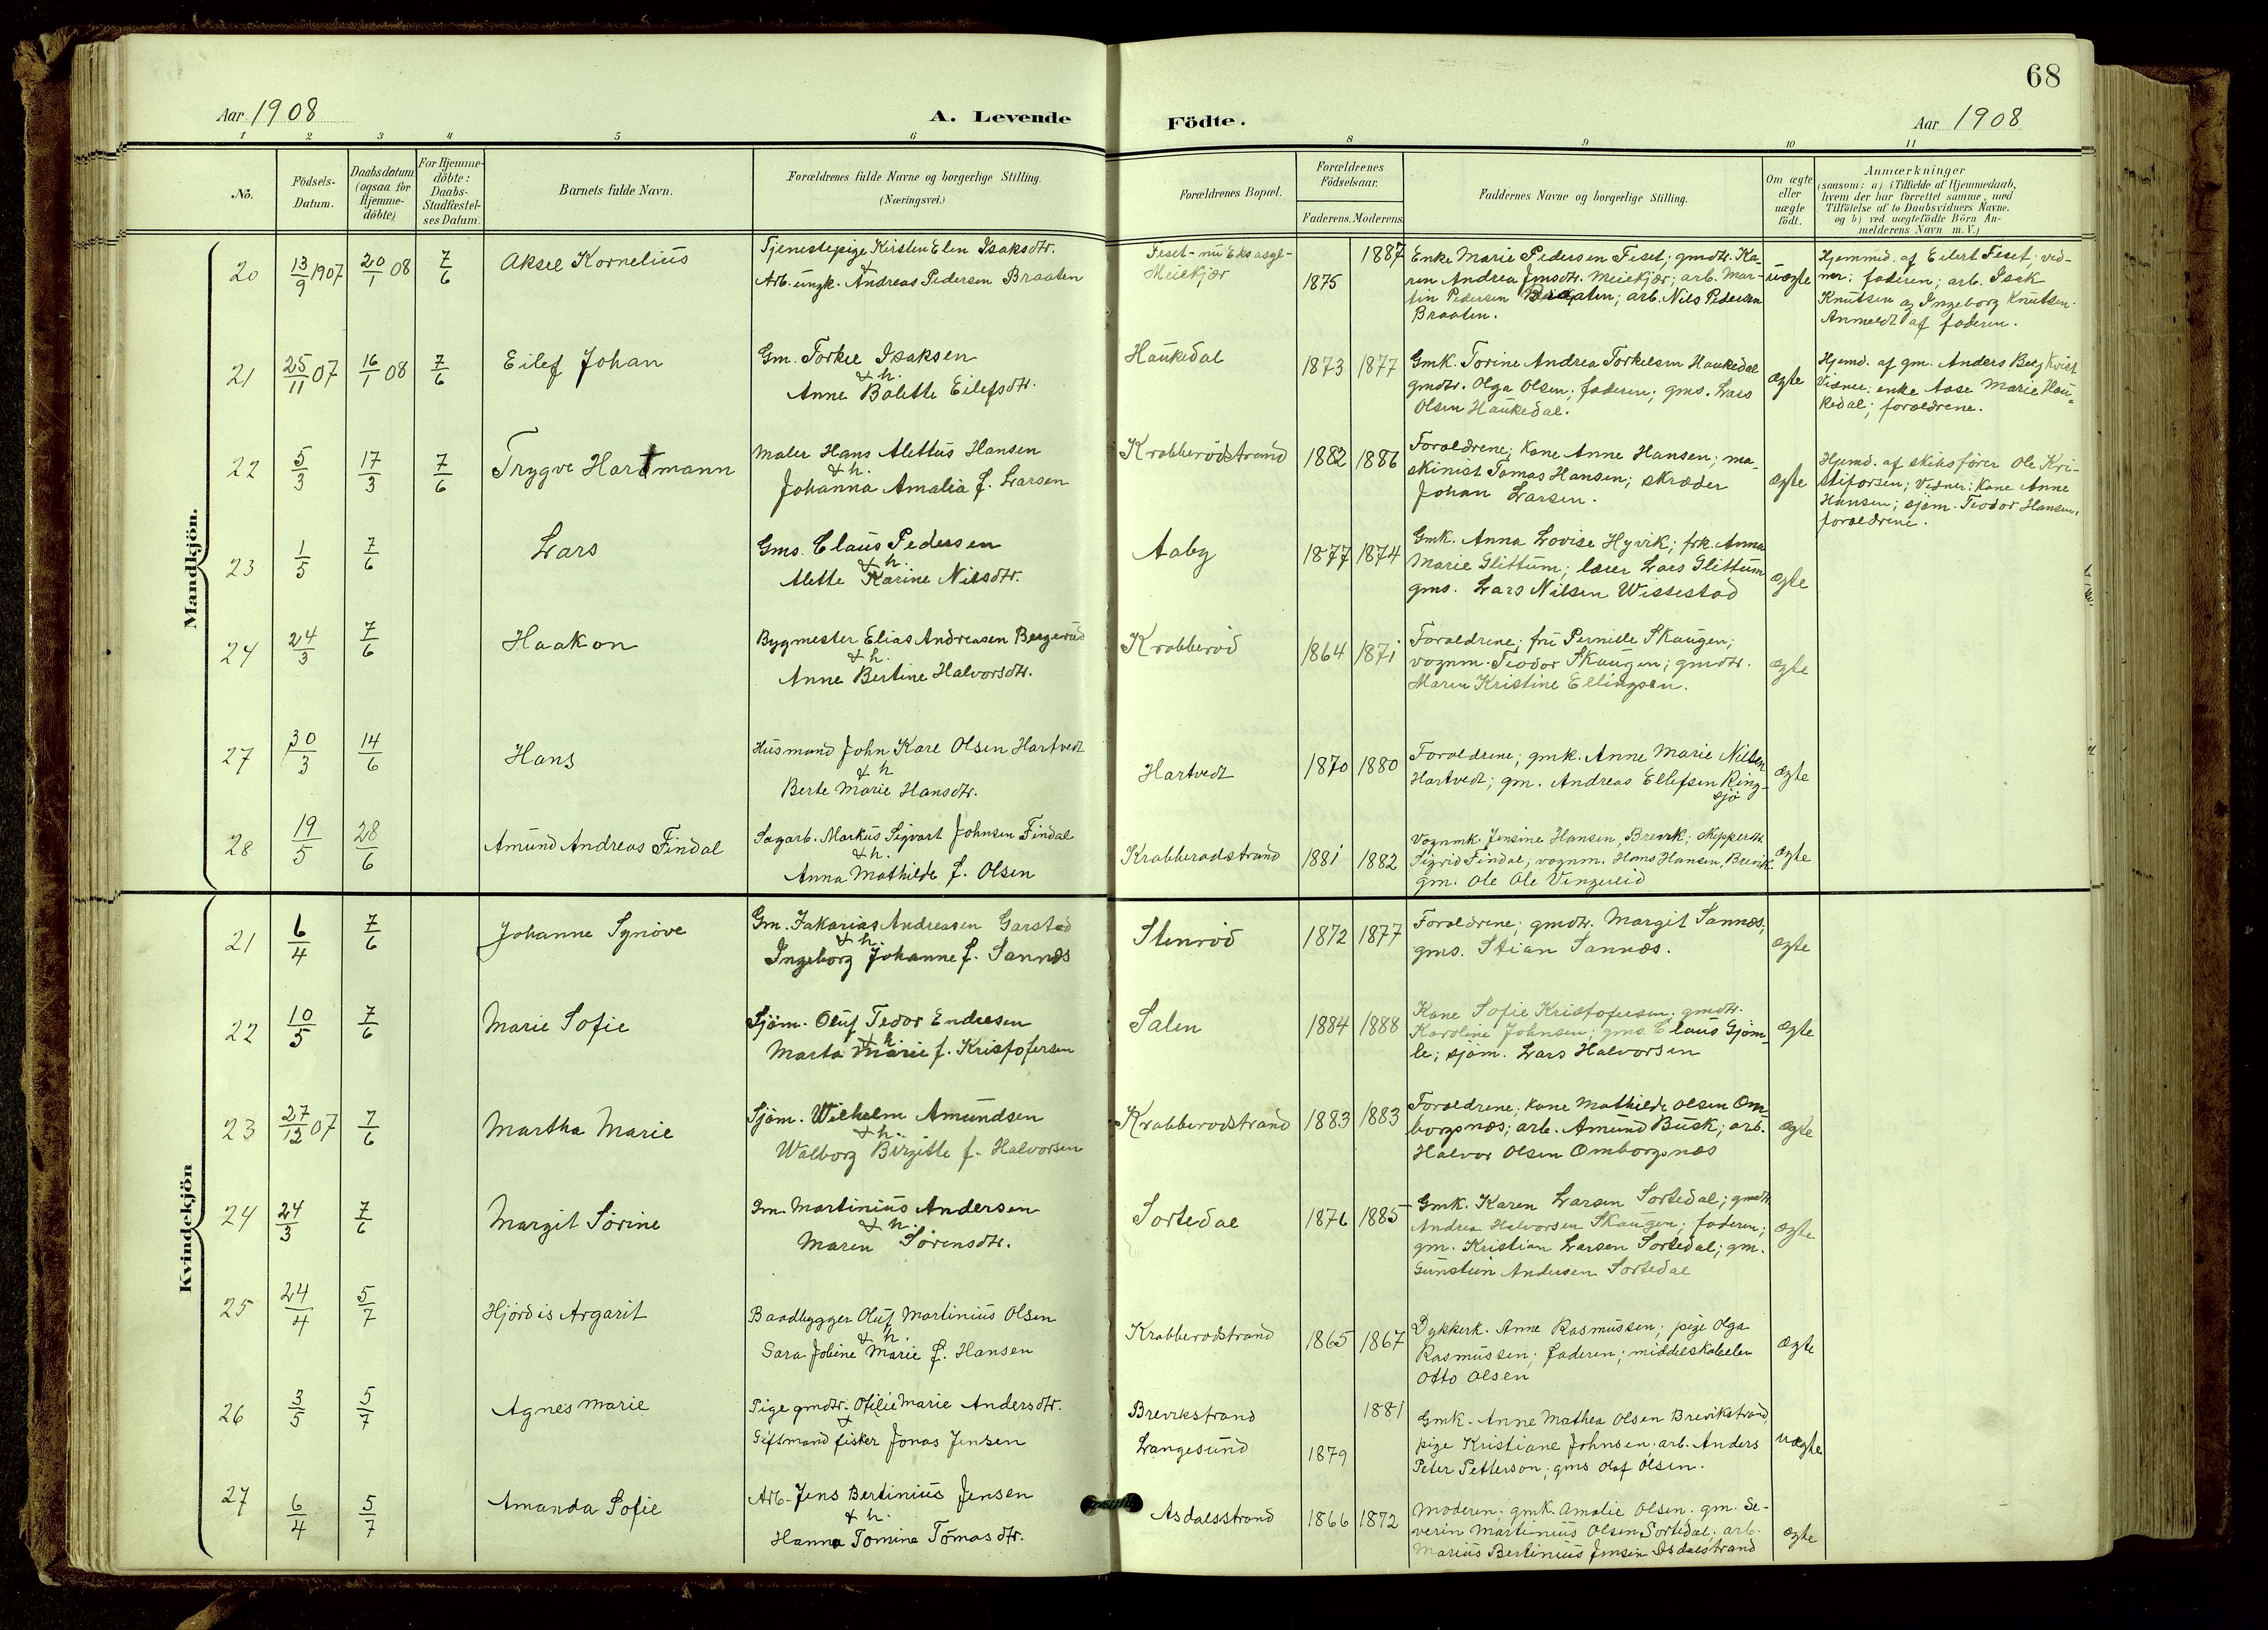 68
Aar 1908
A. Levende
Födte.
Aar 1908
1 2 3 4 5 6 8 9 10 11
No.
Födsels-
Datum.
Daabsdatum
(ogsaa for
Hjemme-
döbte)
For Hjemme-
döbte:
Daabs-
Stadfæstel-
ses Datum.
Barnets fulde Navn.
Forældrenes fulde Navne og borgerlige Stilling.
(Næringsvei.)
Forældrenes Bopæl.
Forældrenes
Födselsaar.
Faderens. Moderens.
Faddernes Navne og borgerlige Stilling.
Om ægte
eller
uægte
födt.
Anmærkninger
(saasom: a) i Tilfælde af Hjemmedaab,
hvem der har forrettet samme, med
Tilföielse af to Daabsvidners Navne.
og b) ved uægtefödte Börn An-
melderens Navn m.V.)
Mandkjön.
20
13/9 1907
20/1 08
7/6
Aksel Kornelius
Tjenestepige Kirsten Elen Isaksdtr.
&
Arb. ungk. Andreas Pedersen Braaten
Feset - nu Eksasyl-
Meiekjær
1875
1887
Enke Marie Pedersen Feset; gmdtr. Ka-
ren Andrea Jensdtr. Meiekjær; arb. Mar-
tin Pedersen Braaten; arb. Nils Pedersen
Braaten.
uægte
Hjemmd. af Eilert Feset; vid-
ner: faderen; arb. Isak
Knutsen og Ingeborg Knutsen.
Anmeldt af faderen.
21
25/11 07
16/1 08
7/6
Eilef Johan
Gm. Torkel Isaksen
& h.
Anne Bolette Eilefsdtr.
Haukedal
1873
1877
Gmk. Torine Andrea Torkelsen Haukedal
gmdtr. Olga Olsen; faderen; gms. Lars
Olsen Haukedal.
ægte
Hjemd. af gm. Anders Berg Kvist
Vidner: enke Aase Marie Hau-
kedal; forældrene.
22
5/3
17/3
7/6
Trygve Hartmann
Maler Hans Alettus Hansen
& h.
Johanna Amalia f. Larsen
Krabberödstrand
1882
1886
Forældrene; kone Anne Hansen; ma-
skinist Tomas Hansen; skræder
Johan Larsen.
ægte
Hjemd. af skibsförer Ole Kri-
stiforsen; Vidner: kone Anne
Hansen; sjöm. Teodor Hansen,
forældrene.
23
1/5
7/6
Lars
Gms. Claus Pedersen
& h.
Alette Karine Nilsdtr.
Aaby
1877
1874
Gmk. Anna Lovise Hyvik; frk. Anna
Marie Glittum; lærer Lars Glittum
gms. Lars Nilsen Wissestad
ægte
24
24/3
7/6
Haakon
Bygmester Elias Andreasen Bergerud
& h.
Anne Bertine Halvorsdtr.
Krabberöd
1864
1871
Forældrene; fru Pernille Skaugen;
vognm. Teodor Skaugen; gmdtr.
Maren Kristine Ellingsen.
ægte
27
30/3
14/6
Hans
Husmand John Karl Olsen Hartvedt
& h
Berte Marie Hansdtr.
Hartvedt
1870
1880
Forældrene; gmk. Anne Marie Nilsen
Hartvedt; gm. Andreas Ellefsen Ring-
sjö
ægte
28
19/5
28/6
Amund Andreas Findal
Sagarb. Markus Sigvart Johnsen Findal
& h.
Anna Mathilde f. Olsen
Krabberodstrand
1881
1882
Vognmk. Jensine Hansen, Brevik; skipperdtr.
Sigrid Findal; vognm. Hans Hansen, Brevik
gm. Ole Ole Vingereid
ægte
Kvindekjön
21
6/4
7/6
Johanne Synöve
Gm. Zakarias Andreasen Garstad
& h.
Ingeborg Johanne f. Sannes
Stenröd
1872
1877
Forældrene; gmdtr. Margit Sannes;
gms. Stian Sannes.
ægte
22
10/5
7/6
Marie Sofie
Sjöm. Oluf Tedor Endresen
& h.
Marta Marie f. Kristofersen
Salen
1884
1888
Kone Sofie Kristofersen; gmdtr.
Karoline Johnsen; gms. Claus Gjöm-
le; sjöm. Lars Halvorsen
ægte
23
27/12 07
7/6
Martha Marie
Sjöm. Wilhelm Amundsen
& h.
Walborg Birgitte f. Halvorsen
Krabberodstrand
1883
1883
Forældrene; kone Mathilde Olsen Om-
borgsnes; arb. Amund Busk; arb.
Halvor Olsen Omborgsnæs
ægte
24
24/3
7/6
Margit Sörine
Gm. Martinius Andersen
& h.
Maren Sörensdtr.
Sortedal
1876
1885
Gmk. Karen Larsen Sortedal; gmdtr.
Andrea Halvorsen Skaugen; faderen;
gm. Kristian Larsen Sortedal; gm.
Gunstein Andersen Sortedal
ægte
25
24/4
5/7
Hjördis Argarit
Baadbygger Oluf Martinius Olsen
& h.
Sara Joline Marie f. Hansen
Krabberodstrand
1865
1867
Dykkerk. Anne Rasmussen; pige Olga
Rasmussen; faderen; middelskoleelev
Otto Olsen
ægte
26
3/5
5/7
Agnes Marie
Pige gmdtr. Otilie Marie Andersdtr.
&
Giftmand fisker Jonas Jensen
Brevikstrand
Langesund
1879
1881
Gmk. Anne Mathea Olsen Brevikstrand
pige Kristiane Johnsen; arb. Anders
Peter Petterson; gms Olaf Olsen.
uægte
27
6/4
5/7
Amanda Sofie
Arb. Jens Bertinius Jensen
& h.
Hanna Tomine Tomasdtr.
Asdalsstrand
1866
1872
Moderen; gmk. Amalie Olsen; gm. Se-
verin Martinius Olsen Sortedal; arb.
Marius Bertinius Jensen Asdalstrand
ægte